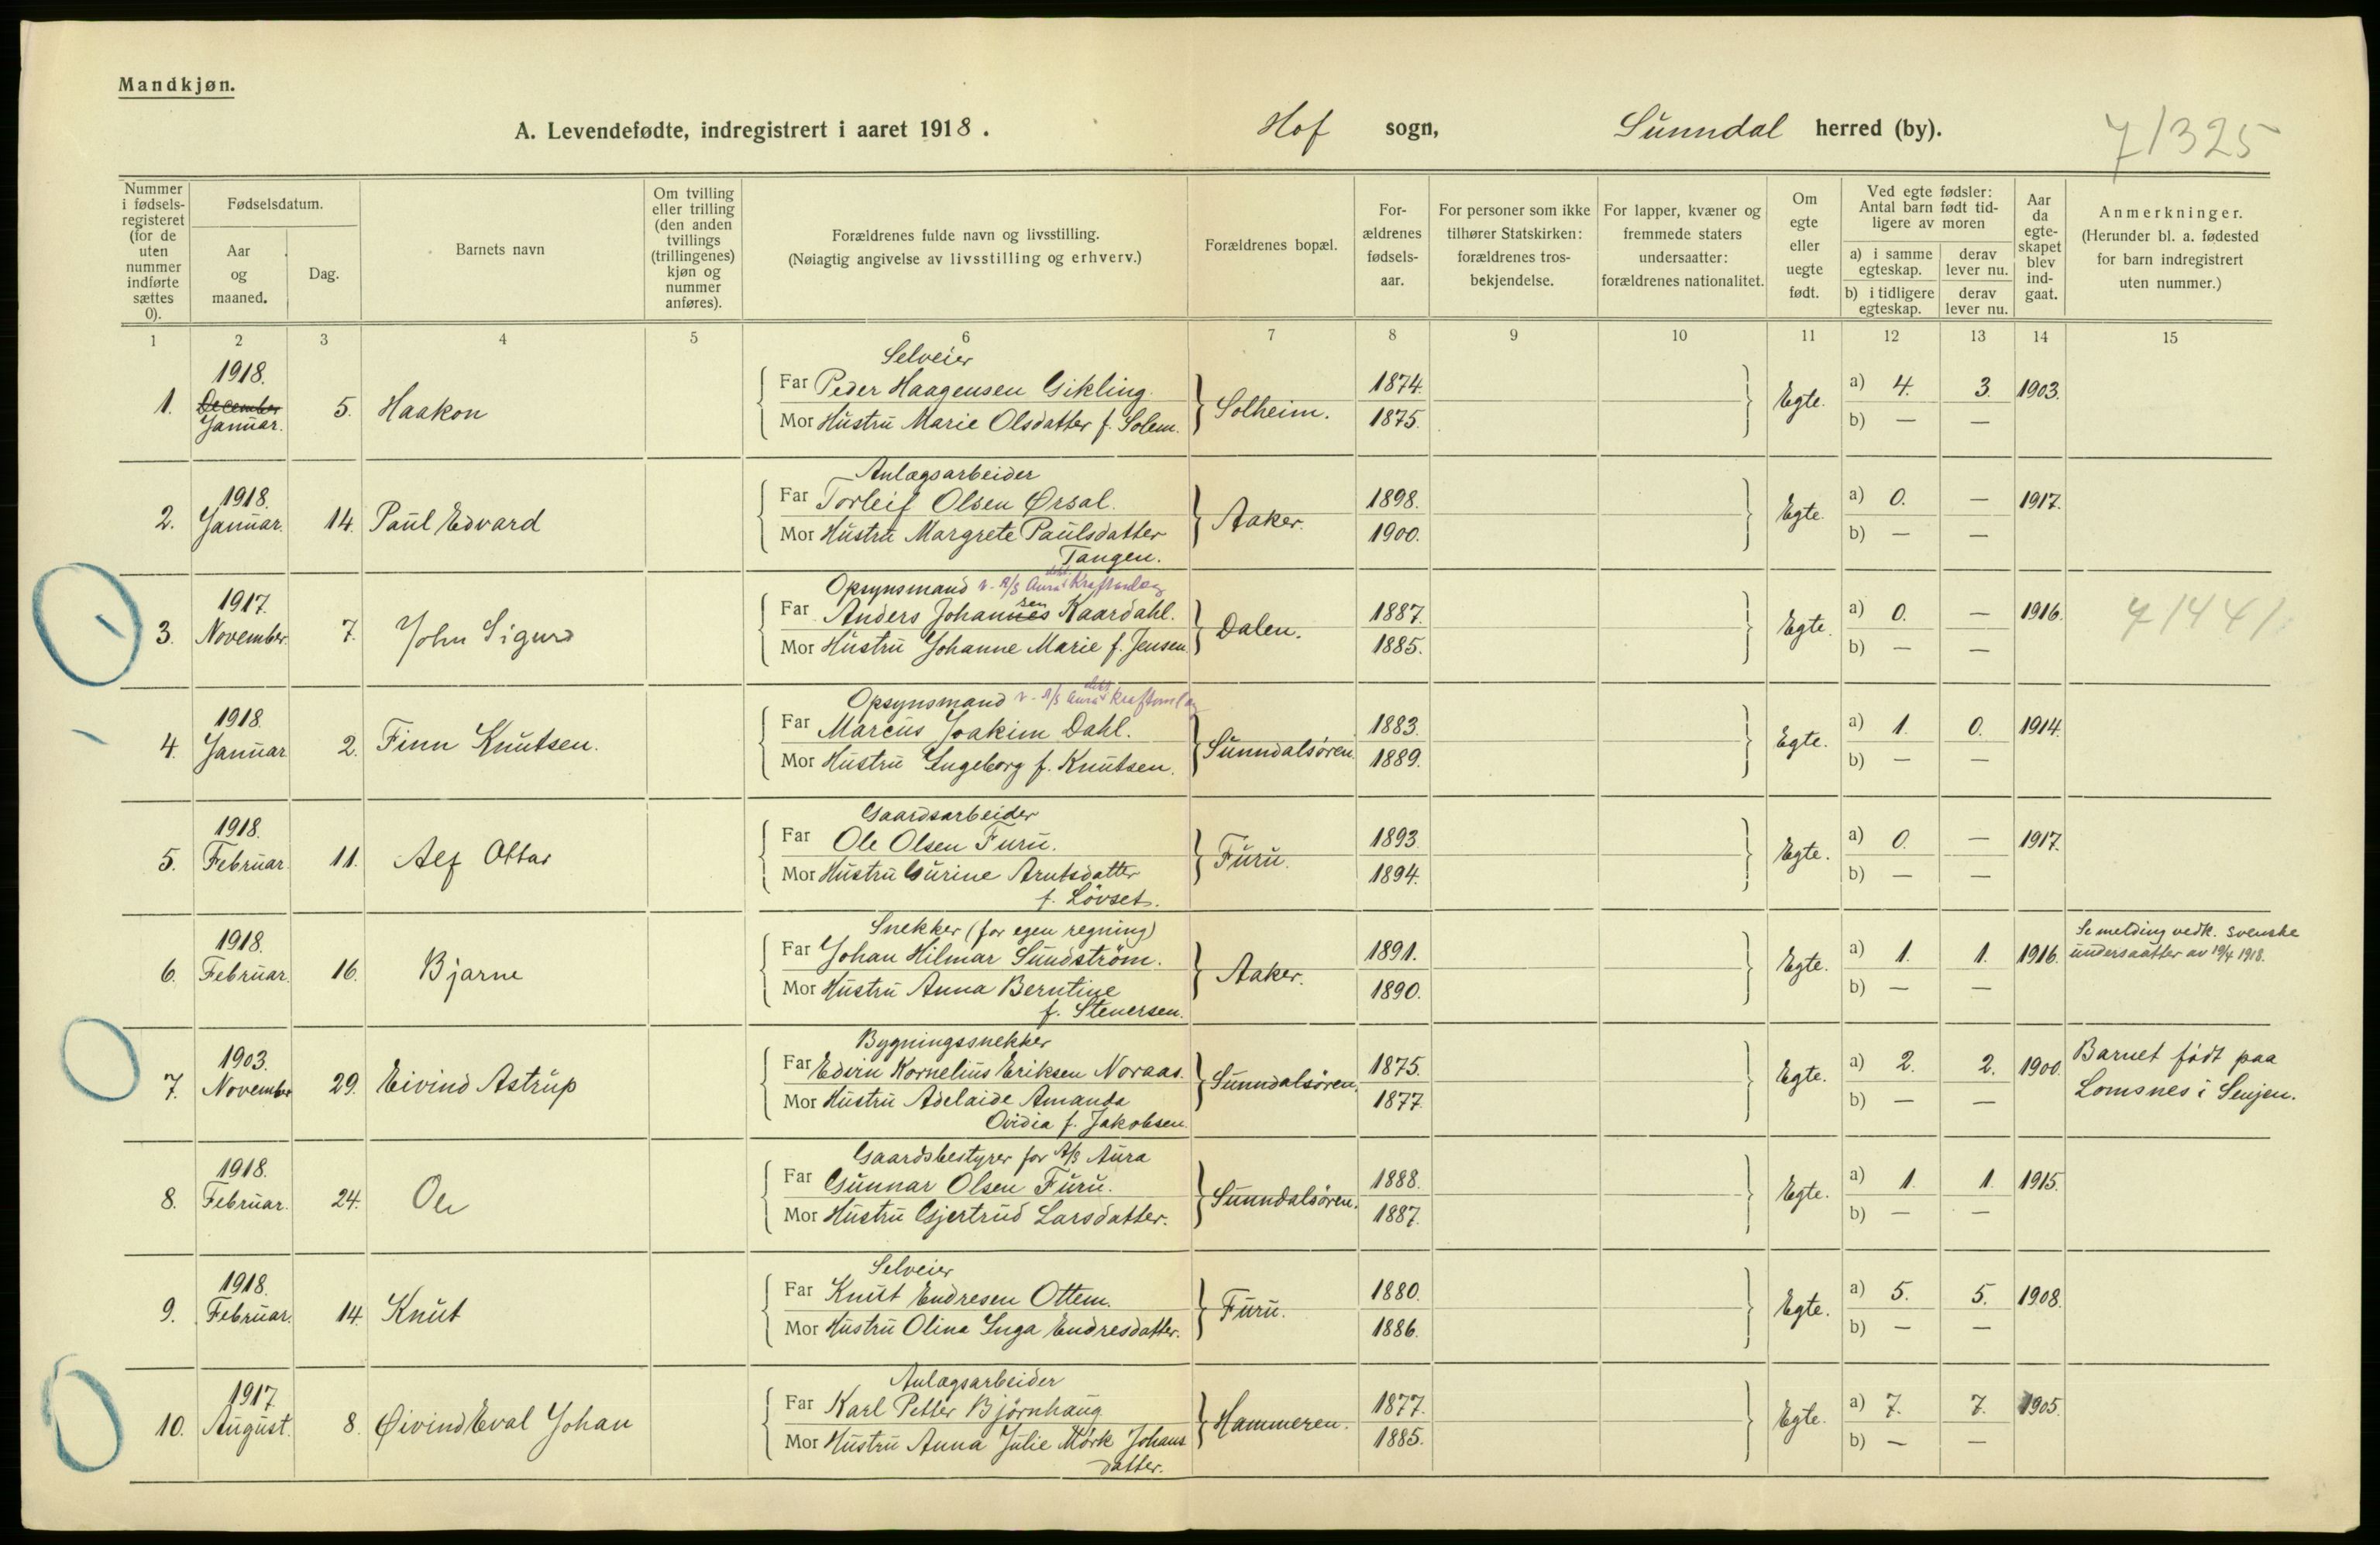 Mandkjøn.
A. Levendefødte, indregistrert i aaret 1918. Hof sogn, Sunndal herred (by). 7/325
Nummer i fødsels-registeret (for de uten nummer indførte sættes 0).
Fødselsdatum.
Aar og maaned.
Dag.
Barnets navn
Om tvilling eller trilling (den anden tvillings (trillingenes) kjøn og nummer anføres).
Forældrenes fulde navn og livsstilling.
(Nøiagtig angivelse av livsstilling og erhverv.)
Forældrenes bopæl.
For-ældrenes fødsels-aar.
For personer som ikke tilhører Statskirken: forældrenes tros-bekjendelse.
For lapper, kvæner og fremmede staters undersaatter: forældrenes nationalitet.
Om egte eller uegte født.
Ved egte fødsler: Antal barn født tid-ligere av moren
a) i samme egteskap.
derav lever nu.
b) i tidligere egteskap.
derav lever nu.
Aar da egte-skapet blev ind-gaat.
Anmerkninger.
(Herunder bl. a. fødested for barn indregistrert uten nummer.)
1 2 3 4 5 6 7 8 9 10 11 12 13 14 15
Selveier
1918.
1. December Januar. 5. Haakon
Far Peder Haagensen Gikling. Solheim. 1874. Egte. a) 4. 3. 1903.
Mor Hustru Marie Olsdatter f. Solem. 1875. b) — —
Anlægsarbeider
1918.
2. Januar. 14. Paul Edvard
Far Torleif Olsen Ørsal. Aaker. 1898. Egte a) 0. — 1917.
Mor Hustru Margrete Paulsdatter 1900. b) — —
Tangen.
Opsynsmand v. A/S Aura Kraftanlæg
1917.
3. November. 7. John Sigurd
Far Anders Johannessen Kaardahl. Dalen. 1887. Egte. a) 0. — 1916. 7/441
Mor Hustru Johanne Marie f. Jensen. 1885. b) — —
Opsynsmand v. A/S Aura Kraftanlæg
1918.
4. Januar 2. Finn Knutsen.
Far Marcus Joakim Dahl. Sunndalsøren. 1883. Egte. a) 1. 0. 1914.
Mor Hustru Ingeborg f. Knutsen. 1889. b) — —
Gaardsarbeider
1918.
5. Februar. 11. Alf Ottar
Far Ole Olsen Furu. Furu. 1893. Egte. a) 0. — 1917.
Mor Hustru Gurine Arntsdatter 1894. b) — —
f. Lövset.
Snekker (for egen regning)
1918.
6. Februar. 16. Bjarne
Far Johan Hilmar Sundström. Aaker. 1891. Egte. a) 1. 1. 1916. Se melding vedk. svenske undersaatter av 19/4 1918.
Mor Hustru Anna Berntine 1890. b) — —
f. Stenersen.
Bygningssnekker
1903.
7. November 29. Eivind Astrup
Far Edvin Kornelius Eriksen Noraas. Sunndalsören. 1875. Egte. a) 2. 2. 1900. Barnet födt paa Lomsnes i Senjen.
Mor Hustru Adelaide Amanda 1877. b) — —
Ovidia f. Jakobsen.
Gaardsbestyrer for A/S Aura
1918.
8. Februar. 24. Ole
Far Gunnar Olsen Furu. Sunndalsören. 1888. Egte. a) 1. 1. 1915.
Mor Hustru Gjertrud Larsdatter. 1887. b) — —
Selveier
1918.
9. Februar. 14. Knut
Far Knut Endresen Ottem. Furu. 1880. Egte. a) 5. 5. 1908.
Mor Hustru Olina Inga Endresdatter. 1886. b) — —
Anlægsarbeider
1917
10. August. 8. Øivind Eval Johan
Far Karl Petter Björnhaug Hammeren. 1877. Egte. a) 7. 7. 1905.
Mor Hustru Anna Julie Mörk Johans 1885. b) — —
datter.